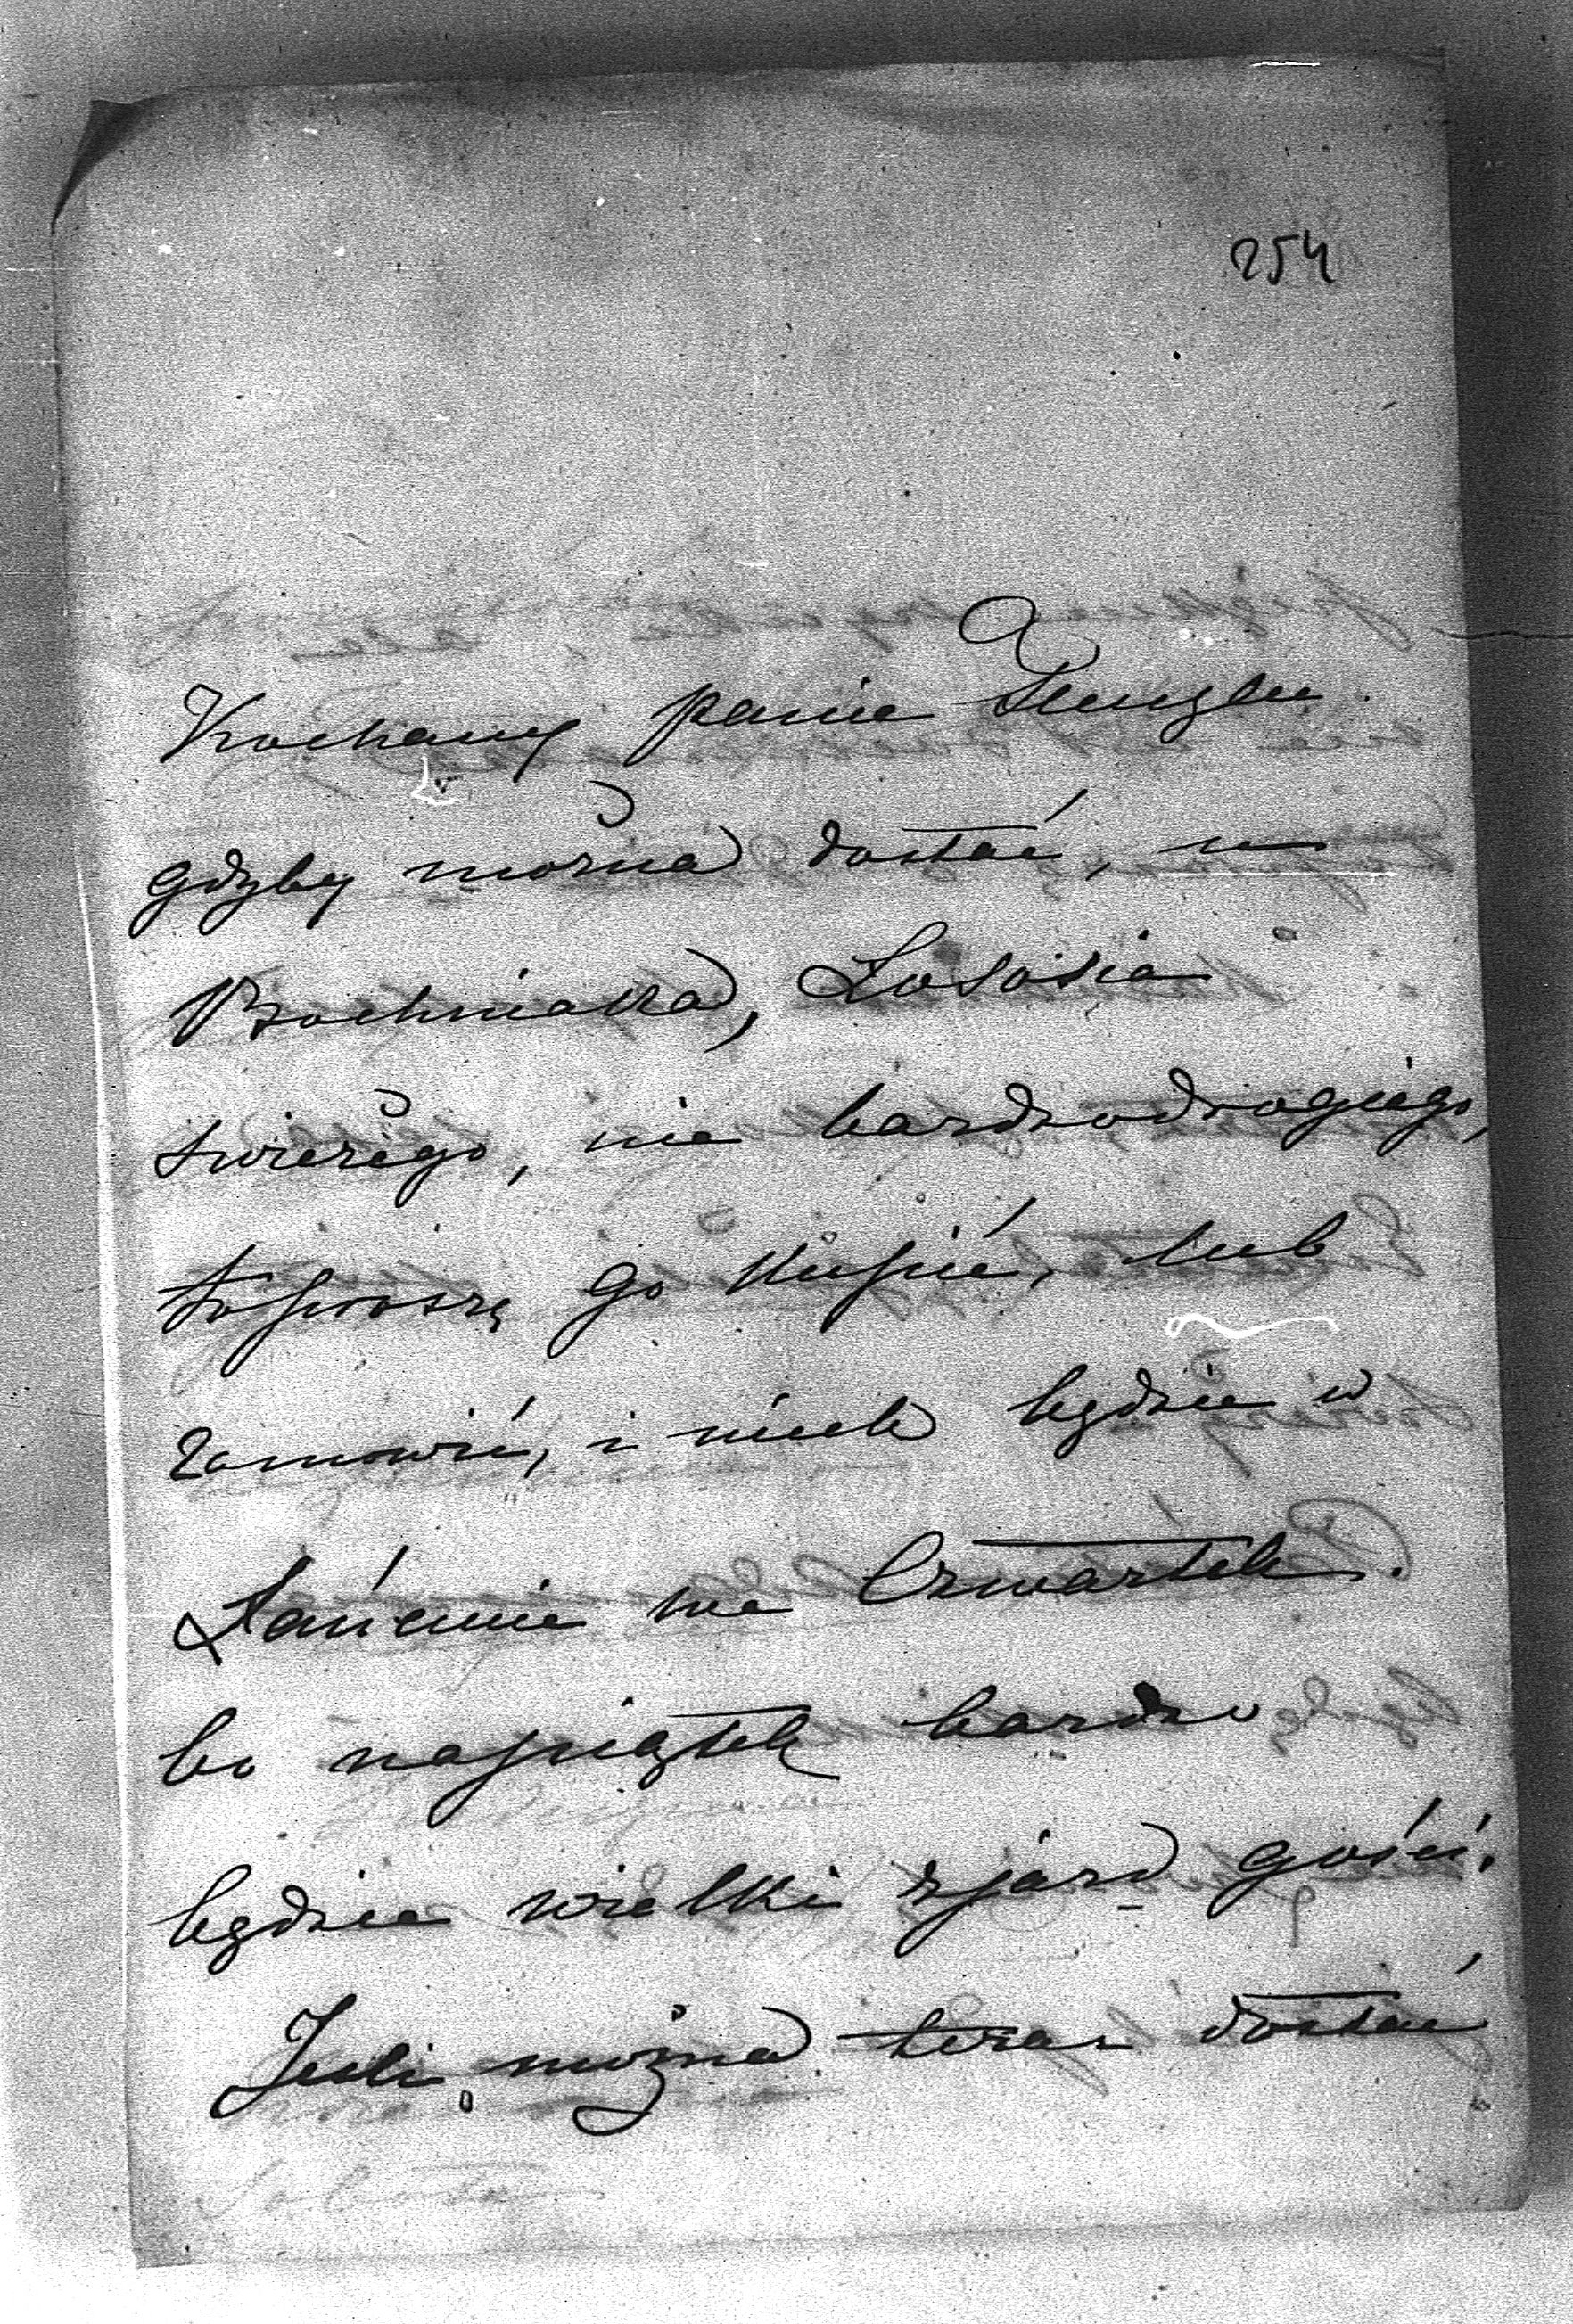 254
Kochany panie Stenzlu
gdyby można dostać, u
Bochniaka, Łososia
świeżego, nie bardzo drogiego,
to proszę go kupić, lub
zamówić, i niech będzie w
Łańcucie we Czwartek.
bo na piątek bardzo
będzie wielki zjazd gości.
Jesli można teraz dostać